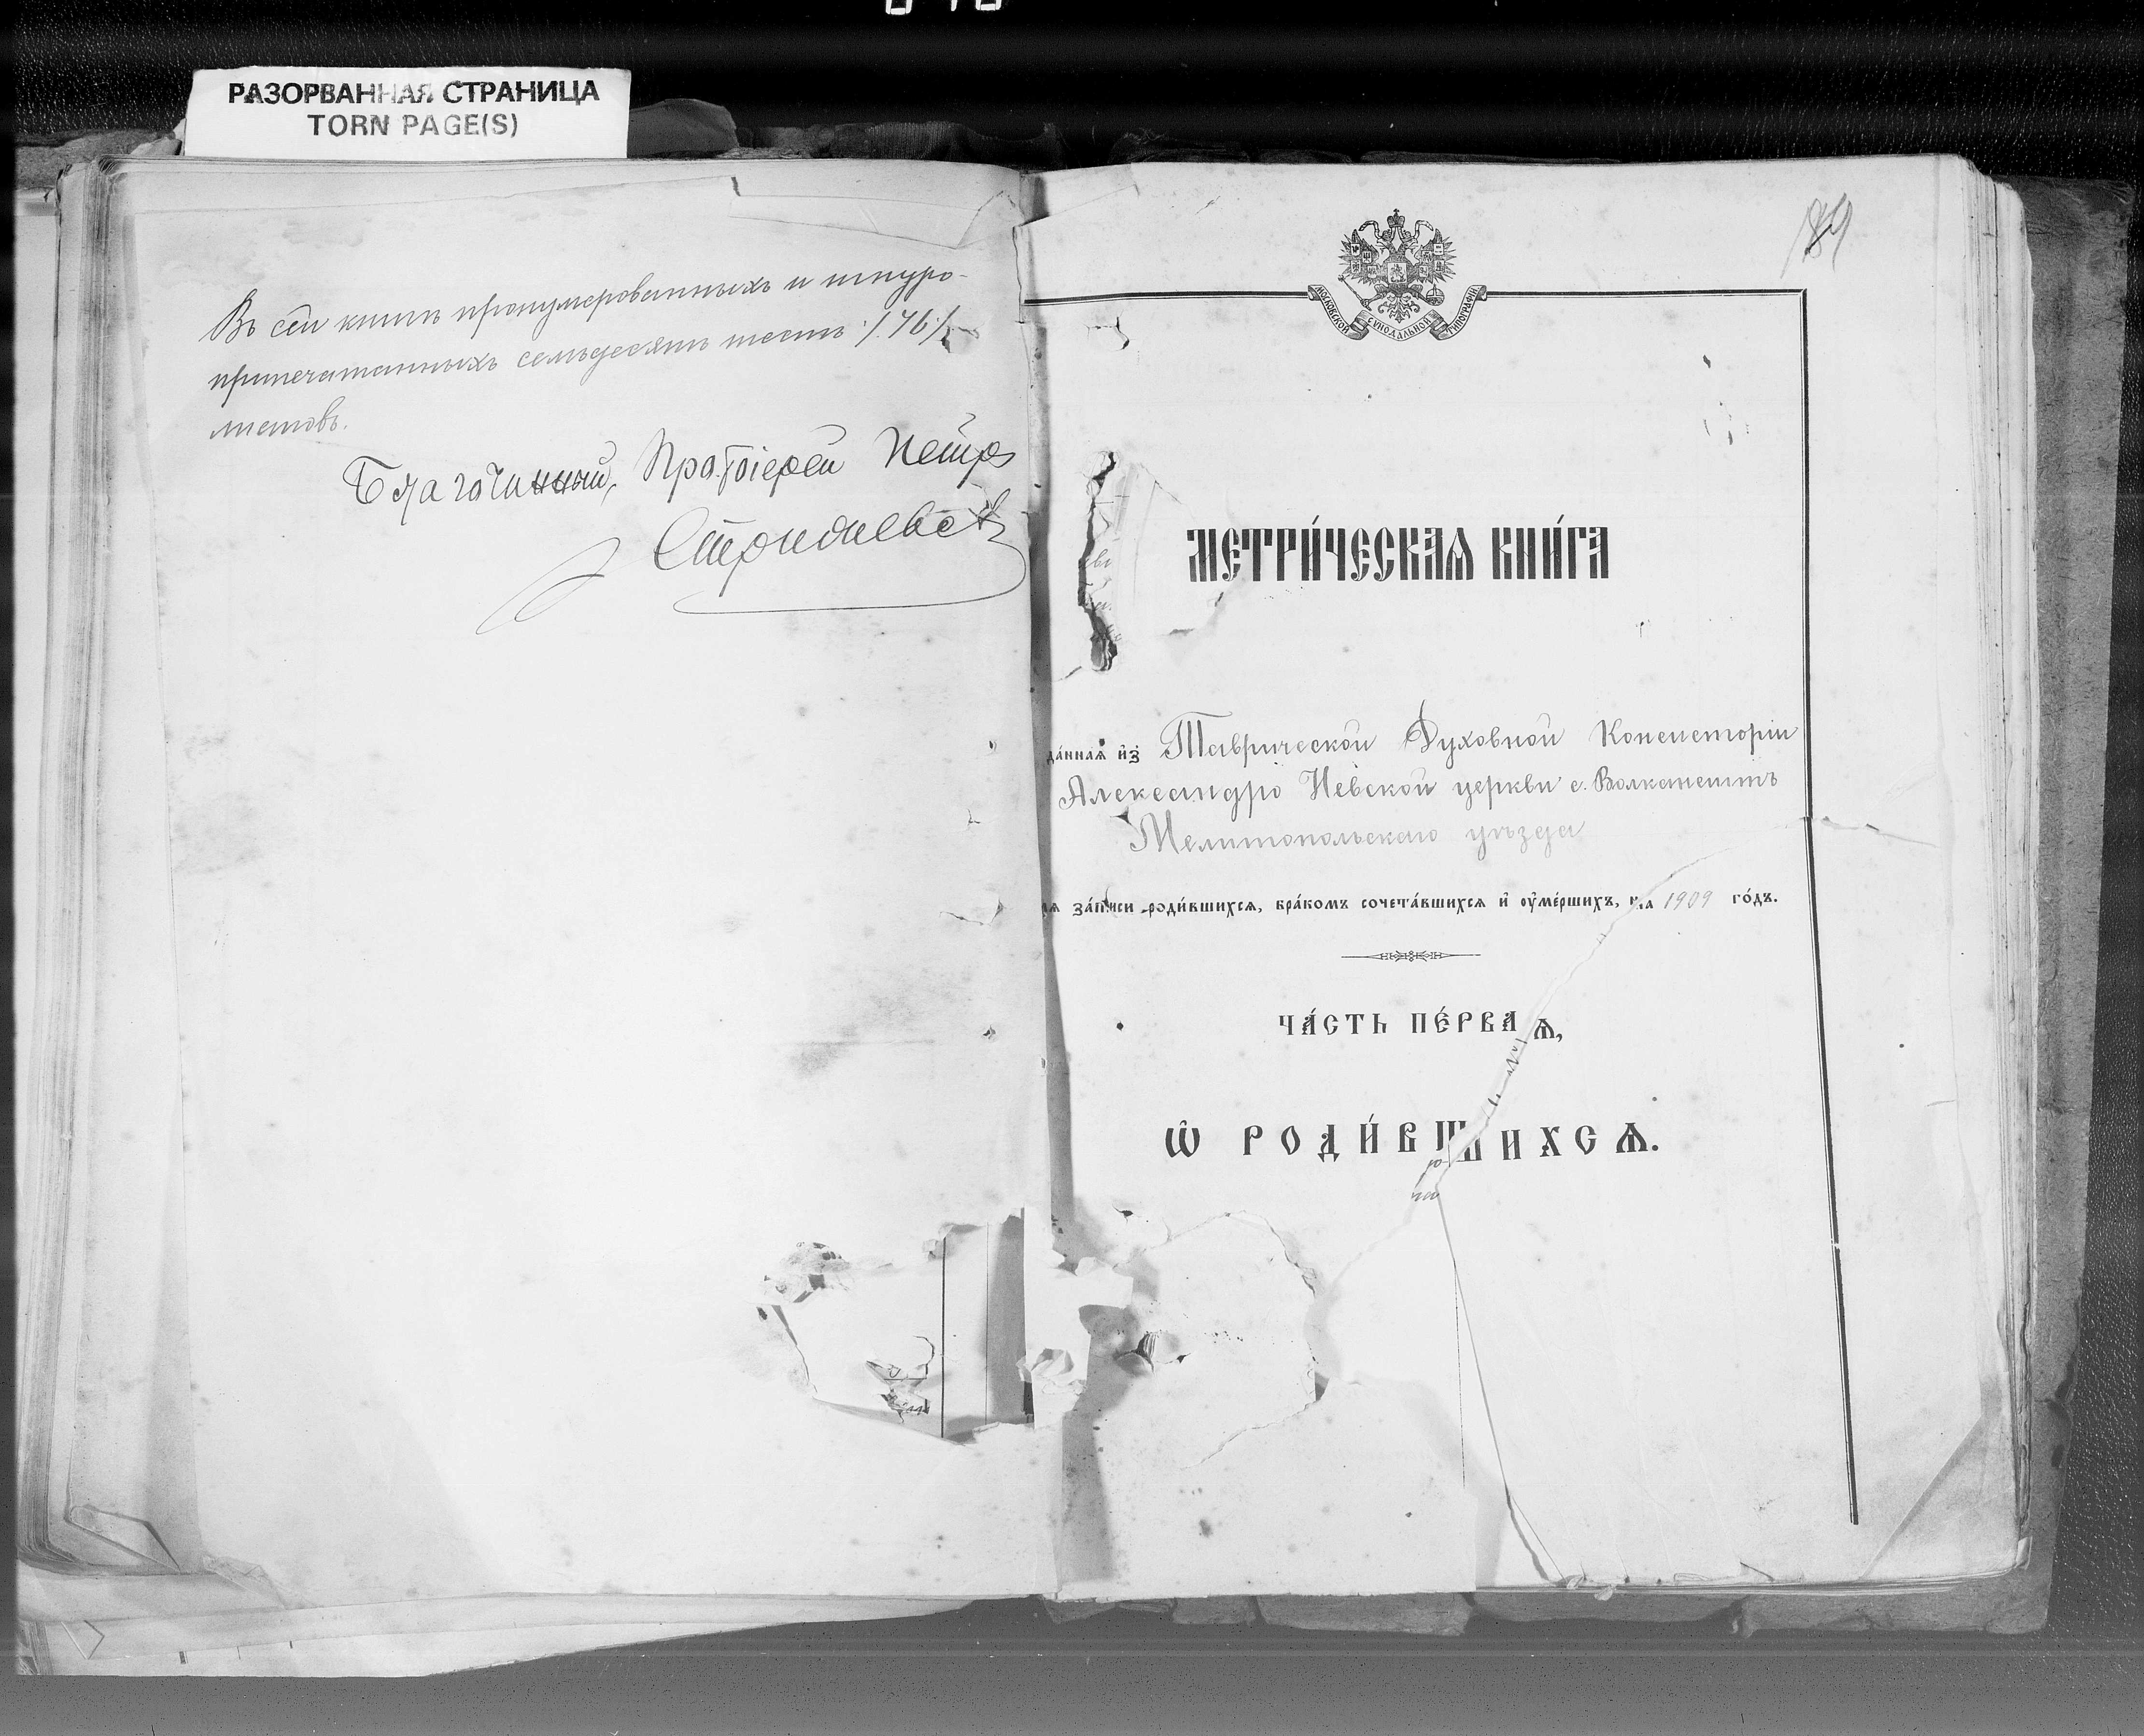 РАЗОРВАННАЯ СТРАНИЦА
TORN PAGE(S)
Въ сей книгѣ пронумерованныхъ и шнуро-
припечатанныхъ семьдесятъ шесть /.76./
листовъ.
Благочинный, Протоіерей Петръ
189
МОСКОВСКОЙ СѴНОДАЛЬНОЙ ТИПОГРАФІИ
МЕТРИ́ЧЕСКАѦ КНИ́ГА
да́ннаѧ и҆з̾ Таврической Духовной Консисторіи
Александро Невской церкви с. Волканештъ
Мелитопольскаго уѣзда
за́писи роди́вшихсѧ, бра́комъ сочета́вшихсѧ и҆ ѹ҆ме́ршихъ, на 1909 го́дъ.
ЧА́СТЬ ПЕ́РВАѦ,
Ѽ РОДИ́ВШИХСѦ.